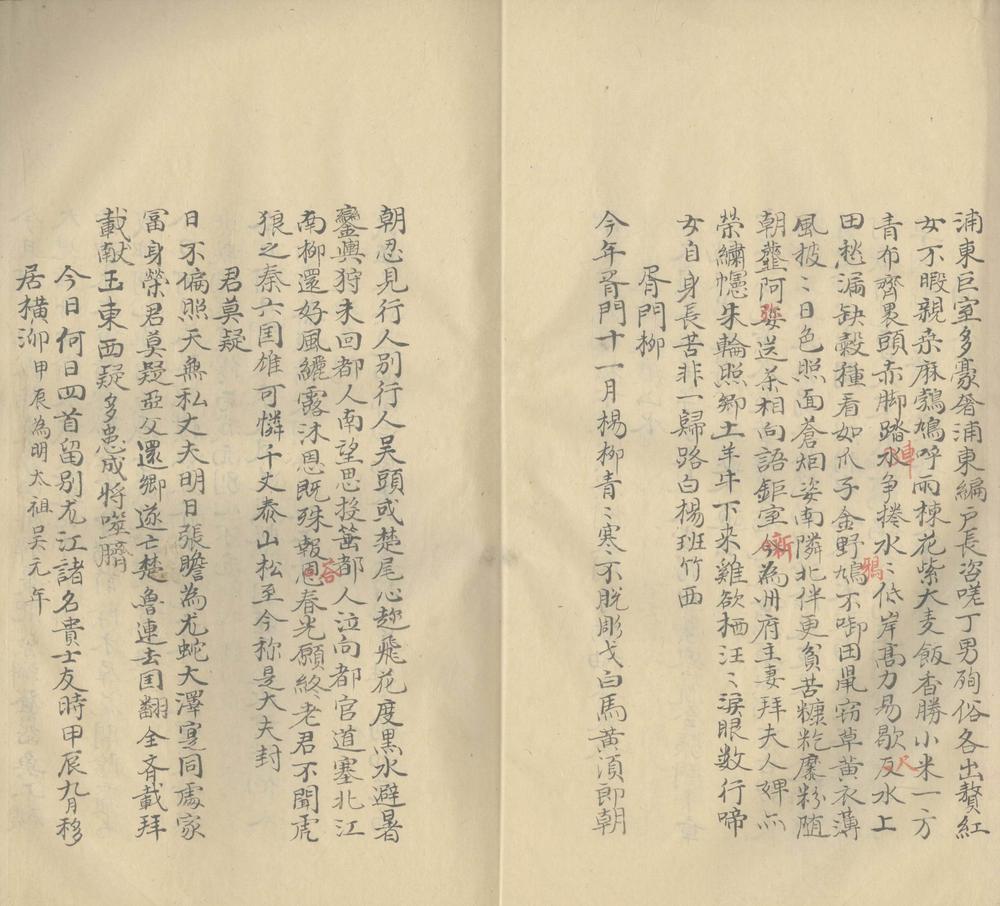 浦東巨室多豪奢浦東編戶長咨嗟丁男殉俗各出贅紅
女不暇親桑麻鵓鳩呼雨楝花紫大麦飯香勝小米一方
青布齊裹頭赤脚踏水車争捲水〻低岸髙力易歇反尺水上
田愁漏缺穀種看如爪子金野鳩鴉不啣田鼠窃草黄衣薄
風披〻日色照面蒼烟姿南隣北伴更貧苦糠籺麋粉随
朝虀阿婆送茶相向語鉅室今新為州府主妻拜夫人婢亦
荣繡幰朱輪照鄉土羊牛下来雞欲栖汪〻淚眼数行啼
女自身長苦非一歸路白楊班竹西
胥門柳
今年胥門十一月楊柳青〻寒不脱彫戈白馬黄湏郎朝
朝忍見行人別行人吴頭或楚尾心趂飛花度黒水避暑
鑾輿狩未回都人南望思投箠都人泣向都官道塞北江
南柳還好風纚露沐恩既殊報恩答春光願終老君不聞虎
狼之秦六国雄可憐千丈泰山松至今称是大夫封
君莫疑
日不偏照天無私丈夫明日張瞻為尤蛇大澤寔同處家
冨身榮君莫疑亞父還鄉遂亡楚魯連去国翻全斉載拜
載献玉東西疑多患成将噬臍
今日何日四首留别尤江諸名貴士友時甲辰九月移
居横泖甲辰為明太祖吴元年